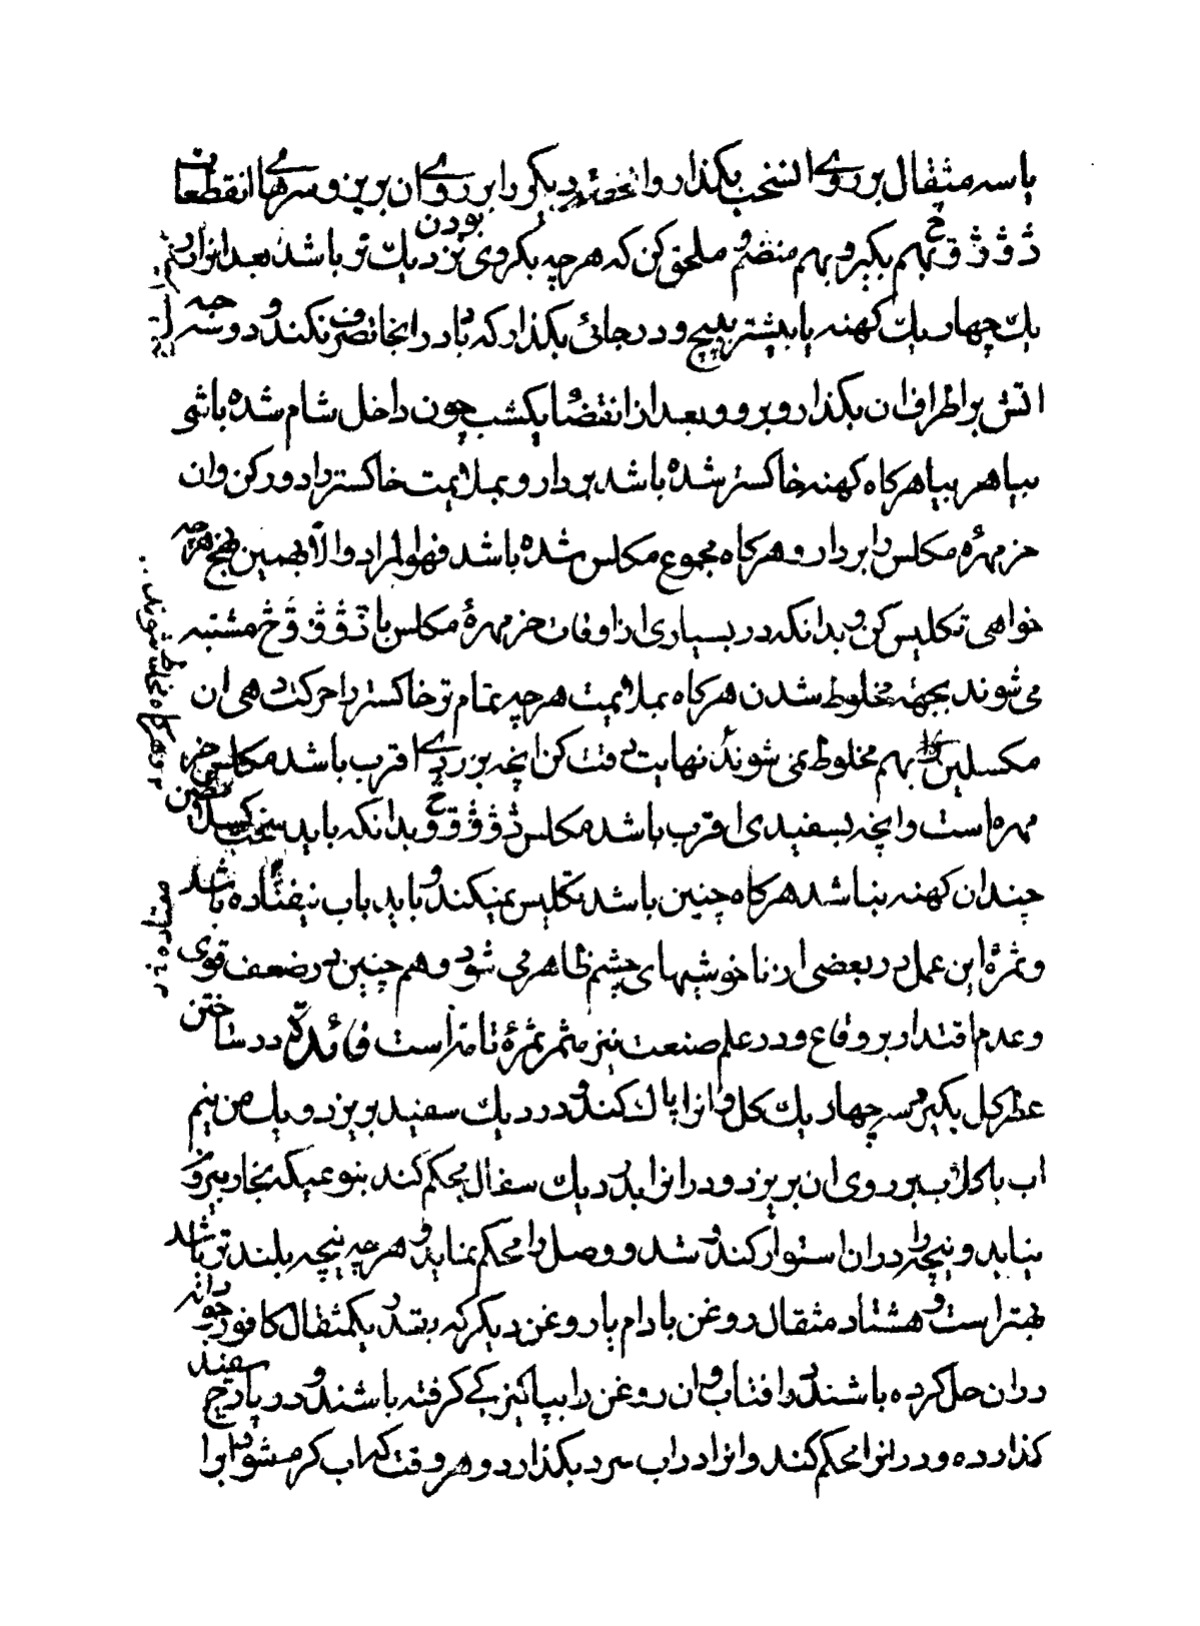 یا سه مثقال بر روی ان بکذار و دیکری را بر روی ان بریز و سرهای انقطعات
بهم بکیر و بهم منضم و ملحق کن که هرچه بکروی بودن نزدیك تر باشد بعد انرا در
یك چهار یك کهنه یا بیشتر بپیچ و در جائی بکذار که باد در انجا تصرف نکند و دو سه حبه
اتش بر اطراف ان بکذار و برو و بعد از انقضا یکشب چون داخل شام شده باشی
بیا هر کاه کهنه خاکستر شده باشد بردار و بملایمت خاکستر را دور کن و ان
خر مهرهٔ مکلس را بردار و هر کاه مجموع مکلس شده باشد فهو المراد و الّا بهمین نهج هرچه
خواهی تکلیس کن و بدانکه در بسیاری از اوقات خر مهرهٔ مکلس با مشتبه
می شوند بجهة مخلوط شدن هر کاه بملایمت هرچه تمام تر خاکستر را حرکت دهی ان
مکلسین بهم مخلوط نمی شوند نهایت دقت کن انچه بزردی اقرب باشد مکلس خر
مهره است و انچه بسفیدی اقرب باشد مکلس و بدانکه باید
چندان کهنه نباشد هر کاه چنین باشد تکلیس نمیکند و باید باب نیفتاده باشد
و ثمرهٔ این عمل در بعضی از ناخوشیهای چشم ظاهر می شود و هم چنین در ضعف قوی
و عدم اقتدار بر وقاع و در علم صنعت نیز مثمر ثمرهٔ تامّه است فائدة در ساختن
عطر کل بکیر سه چهار یك کل و انرا پاك کند و در دیك سفید بریزد و یك من نیم
اب با کلاب بر روی ان بریزد و در انرا بدر دیك سفال محکم کند بنوعیکه بخار بیرون
نیاید و نیچه را در ان استوار کند و شد و وصل را محکم نماید و هرچه نیچه بلند تر باشد
بهتر است و هشتاد مثقال روغن بادام یا روغن دیکر که بقدر یکمثقال کافور جودانه
در ان حل کرده باشند در افتاب و ان روغن را بپاکیزکی کرفته باشند و در پارچ سفید
کذارده و در انرا محکم کند و انرا در اب سرد بکذارد و هر وقت که اب کرم شود ابرا